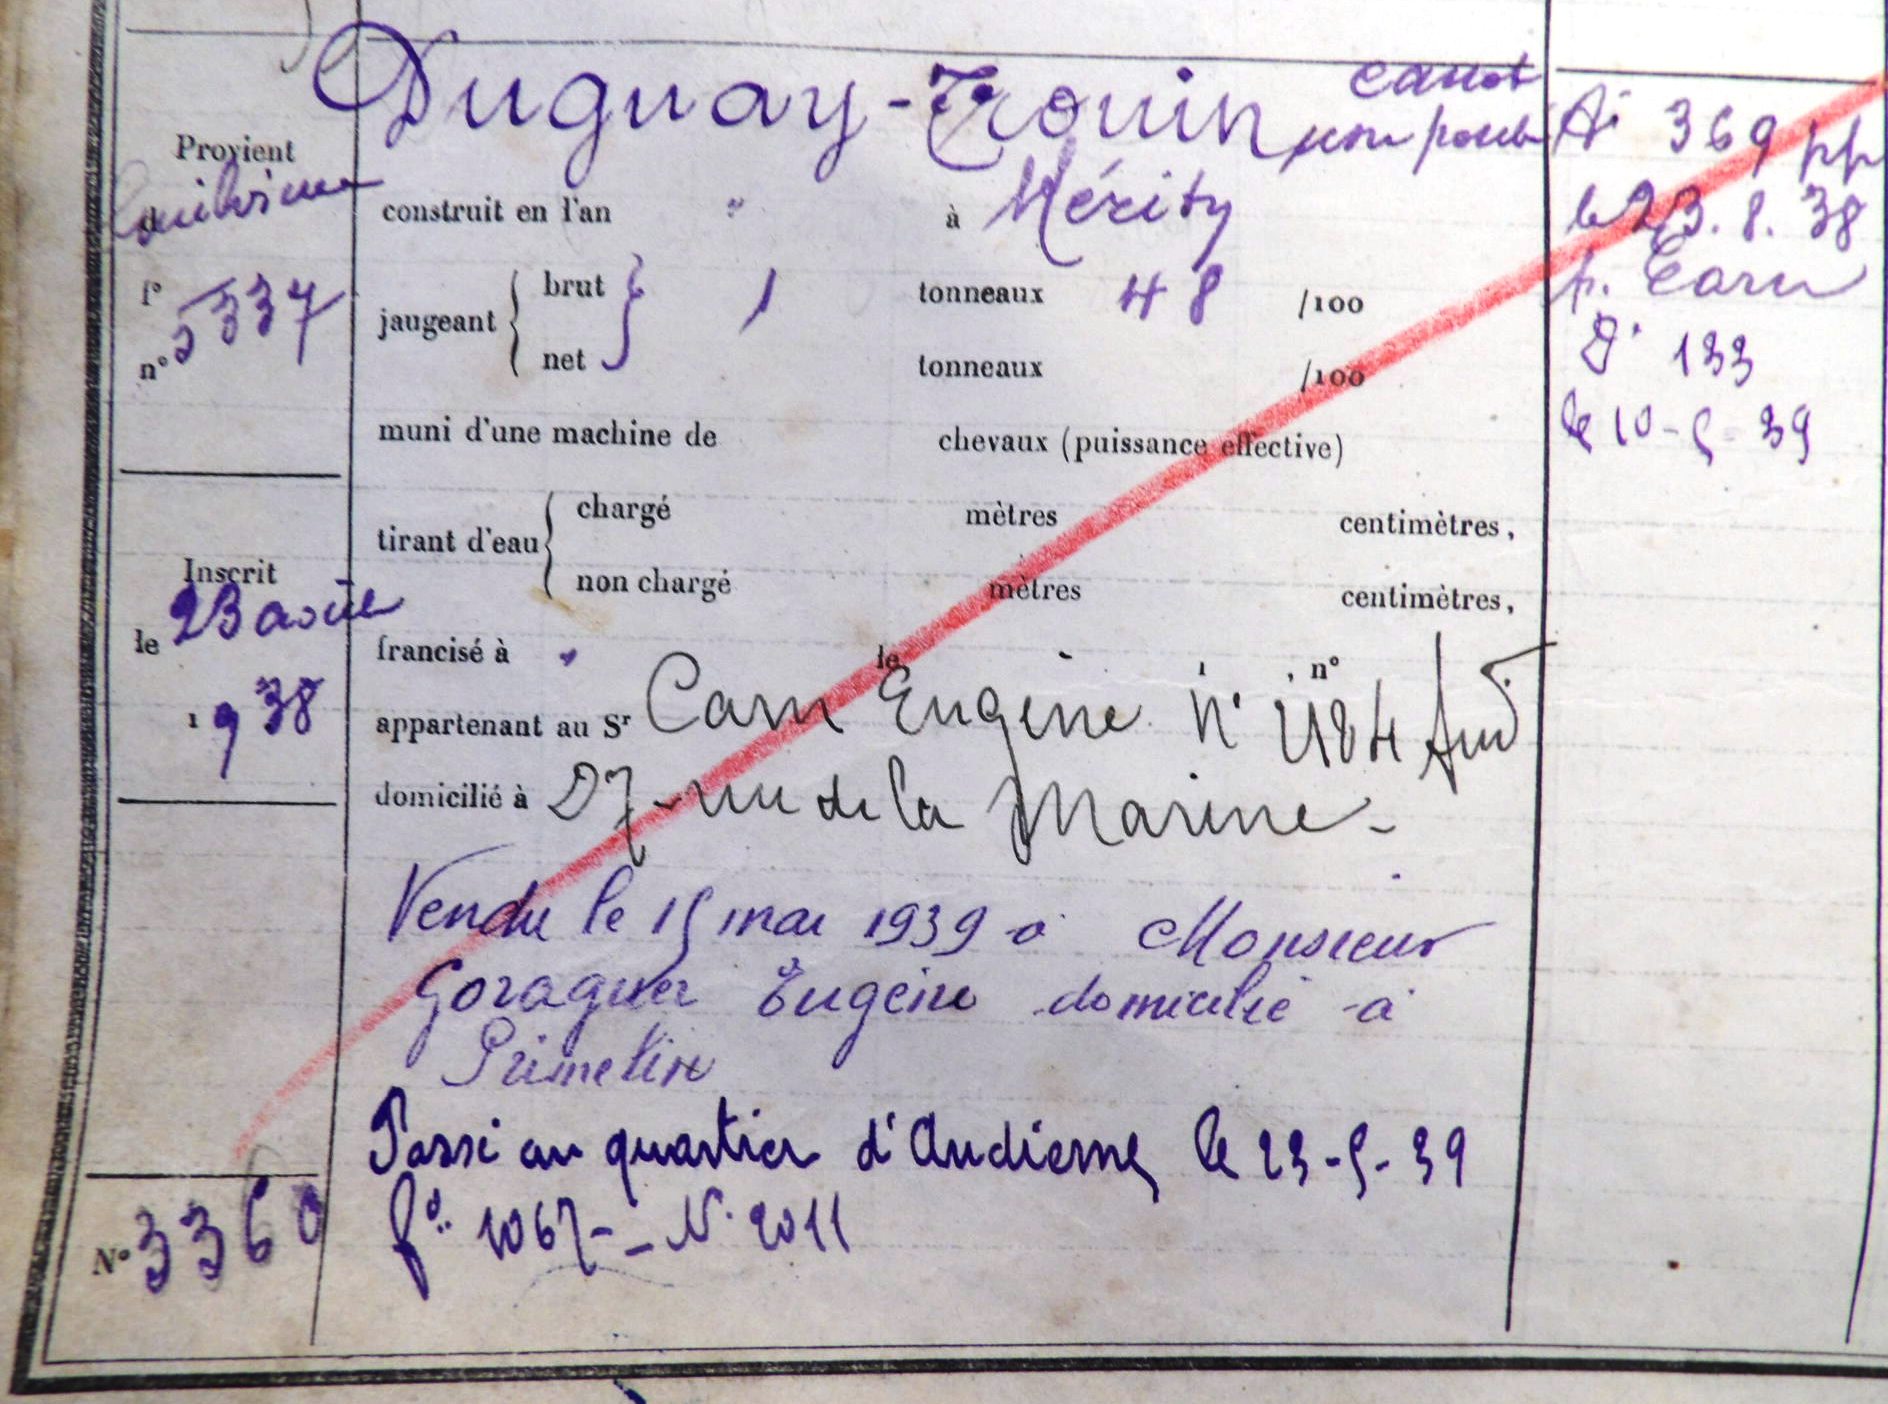 Duguay-Trouin canot
non ponté
Provient
de
f°
n° 5337
construit en l'an " à Mérity
jaugeant brut 1 tonneaux 48 /100
net tonneaux /100
muni d'une machine de chevaux (puissance effective)
tirant d'eau chargé mètres centimètres,
non chargé mètres centimètres,
Inscrit
le 23 août
1938
francisé à " le , n°
appartenant au Sr Carn Eugène N°
domicilié à 27 - rue de la Marine -
Vendu le 15 mai 1939 à Monsieur
Goraguer Eugène domicilié à
Passé au quartier d'Audierne le 23-5-39
f° 1067 - N° 2011
N° 3360
369 pp
le 23.8.38
p. Carn
D° 133
le 10-5-39